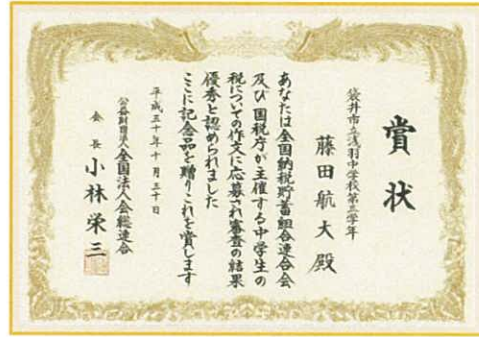 賞状
袋井市立浅羽中学校第三学年
藤田航大殿
あなたは全国納税貯蓄組合連合会
及び国税庁が主催する中学生の
税についての作文に応募され審査の結果
優秀と認められました
ここに記念品を贈りこれを賞します
平成三十年十月三十日
公益財団法人全国法人会総連合
会長小林栄三